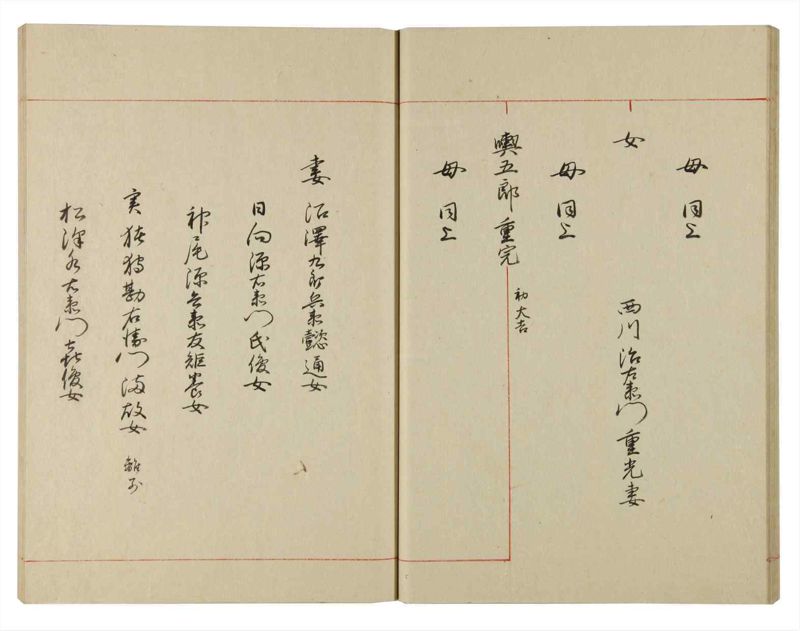 母同上
女 西川治左衛門重光妻
母同上
與五郎重完 初大吉
母同上
妻 沼澤九郎兵衛懿通女
日向源右衛門氏俊女
神尾源兵衛友矩養女
実猪狩勘右衛門満故女 離別
松澤 右衛門 俊女